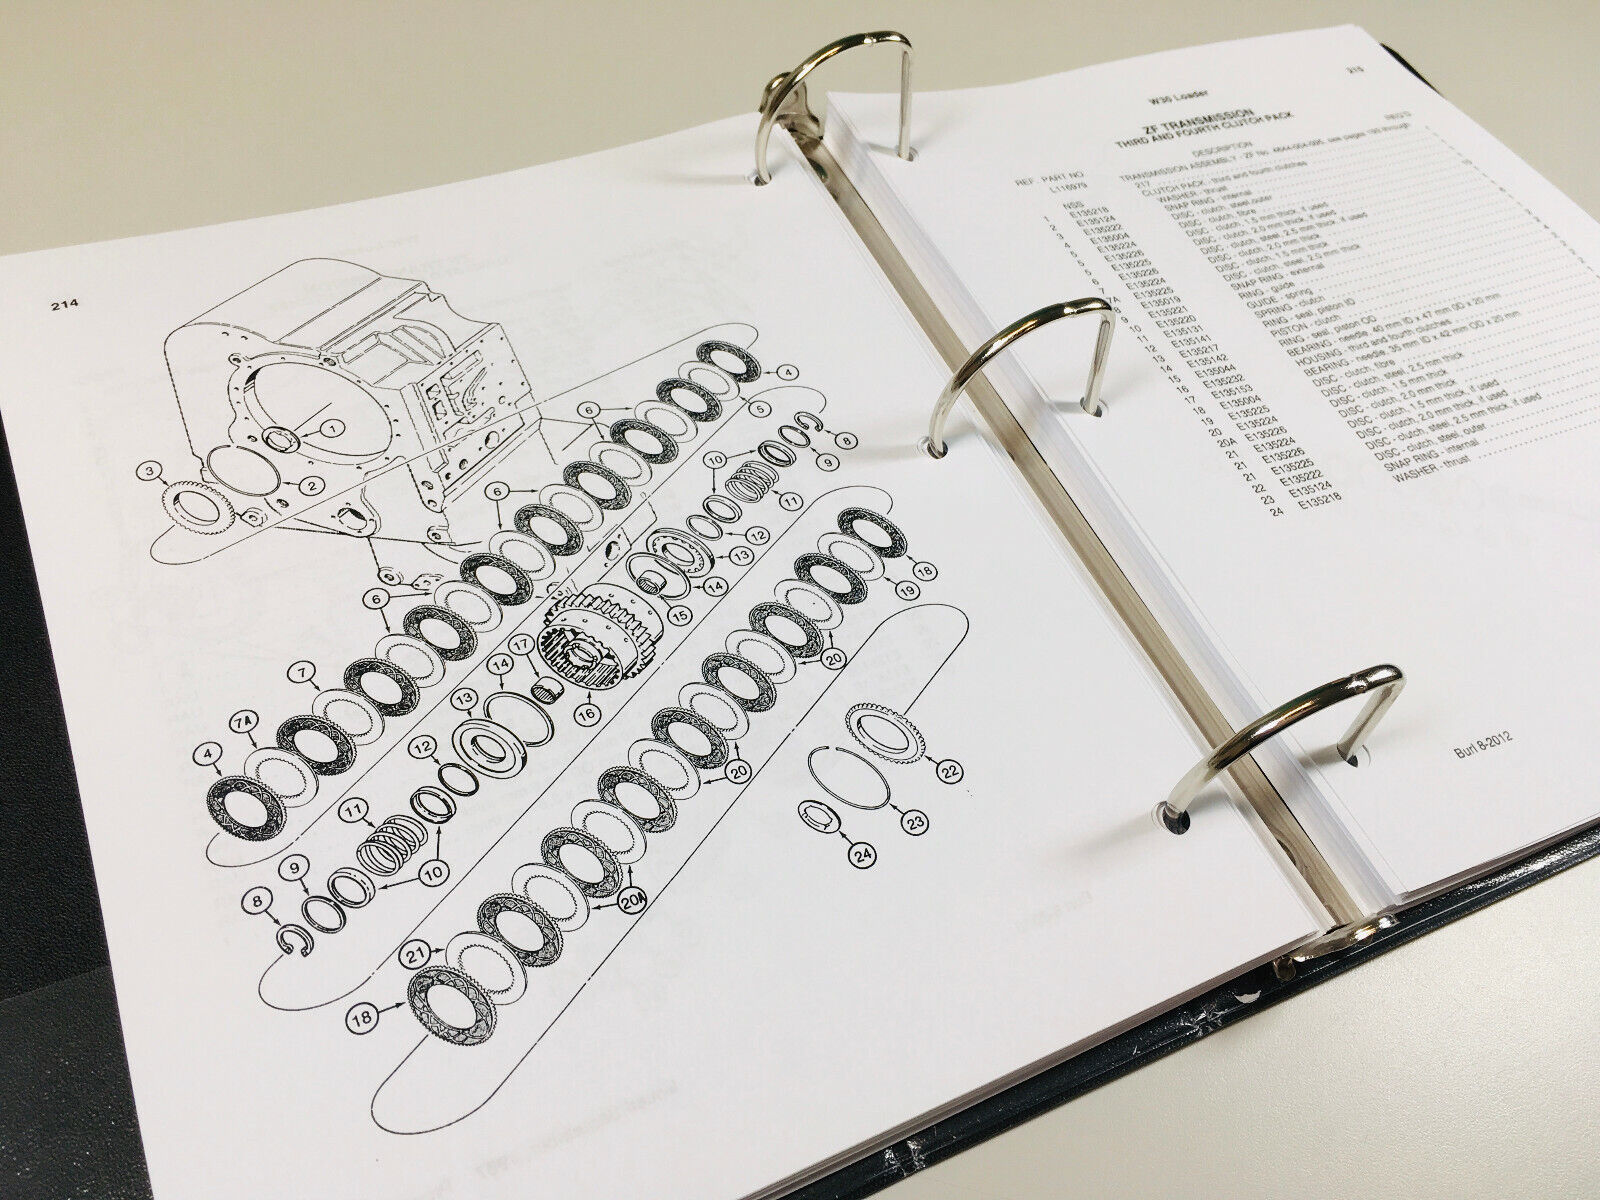 214
1
2
3
4
5
6
6
6
7
7A
4
8
9
10
11
12
13
14
15
16
17
14
13
12
11
10
9
8
18
19
20
20
20A
21
18
22
23
24
215
W30 Loader
ZF TRANSMISSION
THIRD AND FOURTH CLUTCH PACK
REF PART NO DESCRIPTION
L118979 TRANSMISSION ASSEMBLY - ZF No. see pages through
217
NSS CLUTCH PACK - third and fourth clutches
1 E135218 WASHER - thrust
2 E135124 SNAP RING - internal
3 E135222 DISC - clutch, steel, outer
4 E135004 DISC - clutch, fibre
5 E135224 DISC - clutch, 1.5 mm thick, if used
5 E135225 DISC - clutch, 2.0 mm thick, if used
5 E135226 DISC - clutch, steel, 2.5 mm thick, if used
6 E135224 DISC - clutch, 1.5 mm thick
7 E135225 DISC - clutch, steel, 2.0 mm thick
8 E135019 SNAP RING - external
9 E135221 RING - guide
10 E135220 GUIDE - spring
11 E135131 SPRING - clutch
12 E135141 RING - seal, piston ID
13 E135217 PISTON - clutch
14 E135142 RING - seal, piston OD
15 E135044 BEARING - needle, 40 mm ID x 47 mm OD x 20 mm
16 E135232 HOUSING - third and fourth clutches
17 E135153 BEARING - needle 35 mm ID x 42 mm OD x 20 mm
18 E135004 DISC - clutch, fibre
19 E135225
20 E135224 DISC - clutch, 1.5 mm thick
20A E135226
21 E135224 DISC - clutch, 1.5 mm thick, if used
21 E135225 DISC - clutch, 2.0 mm thick, if used
21 E135226 DISC - clutch, steel, 2.5 mm thick, if used
22 E135222 DISC - clutch, steel, outer
23 E135124 SNAP RING - internal
24 E135218 WASHER - thrust
Burl 8-2012